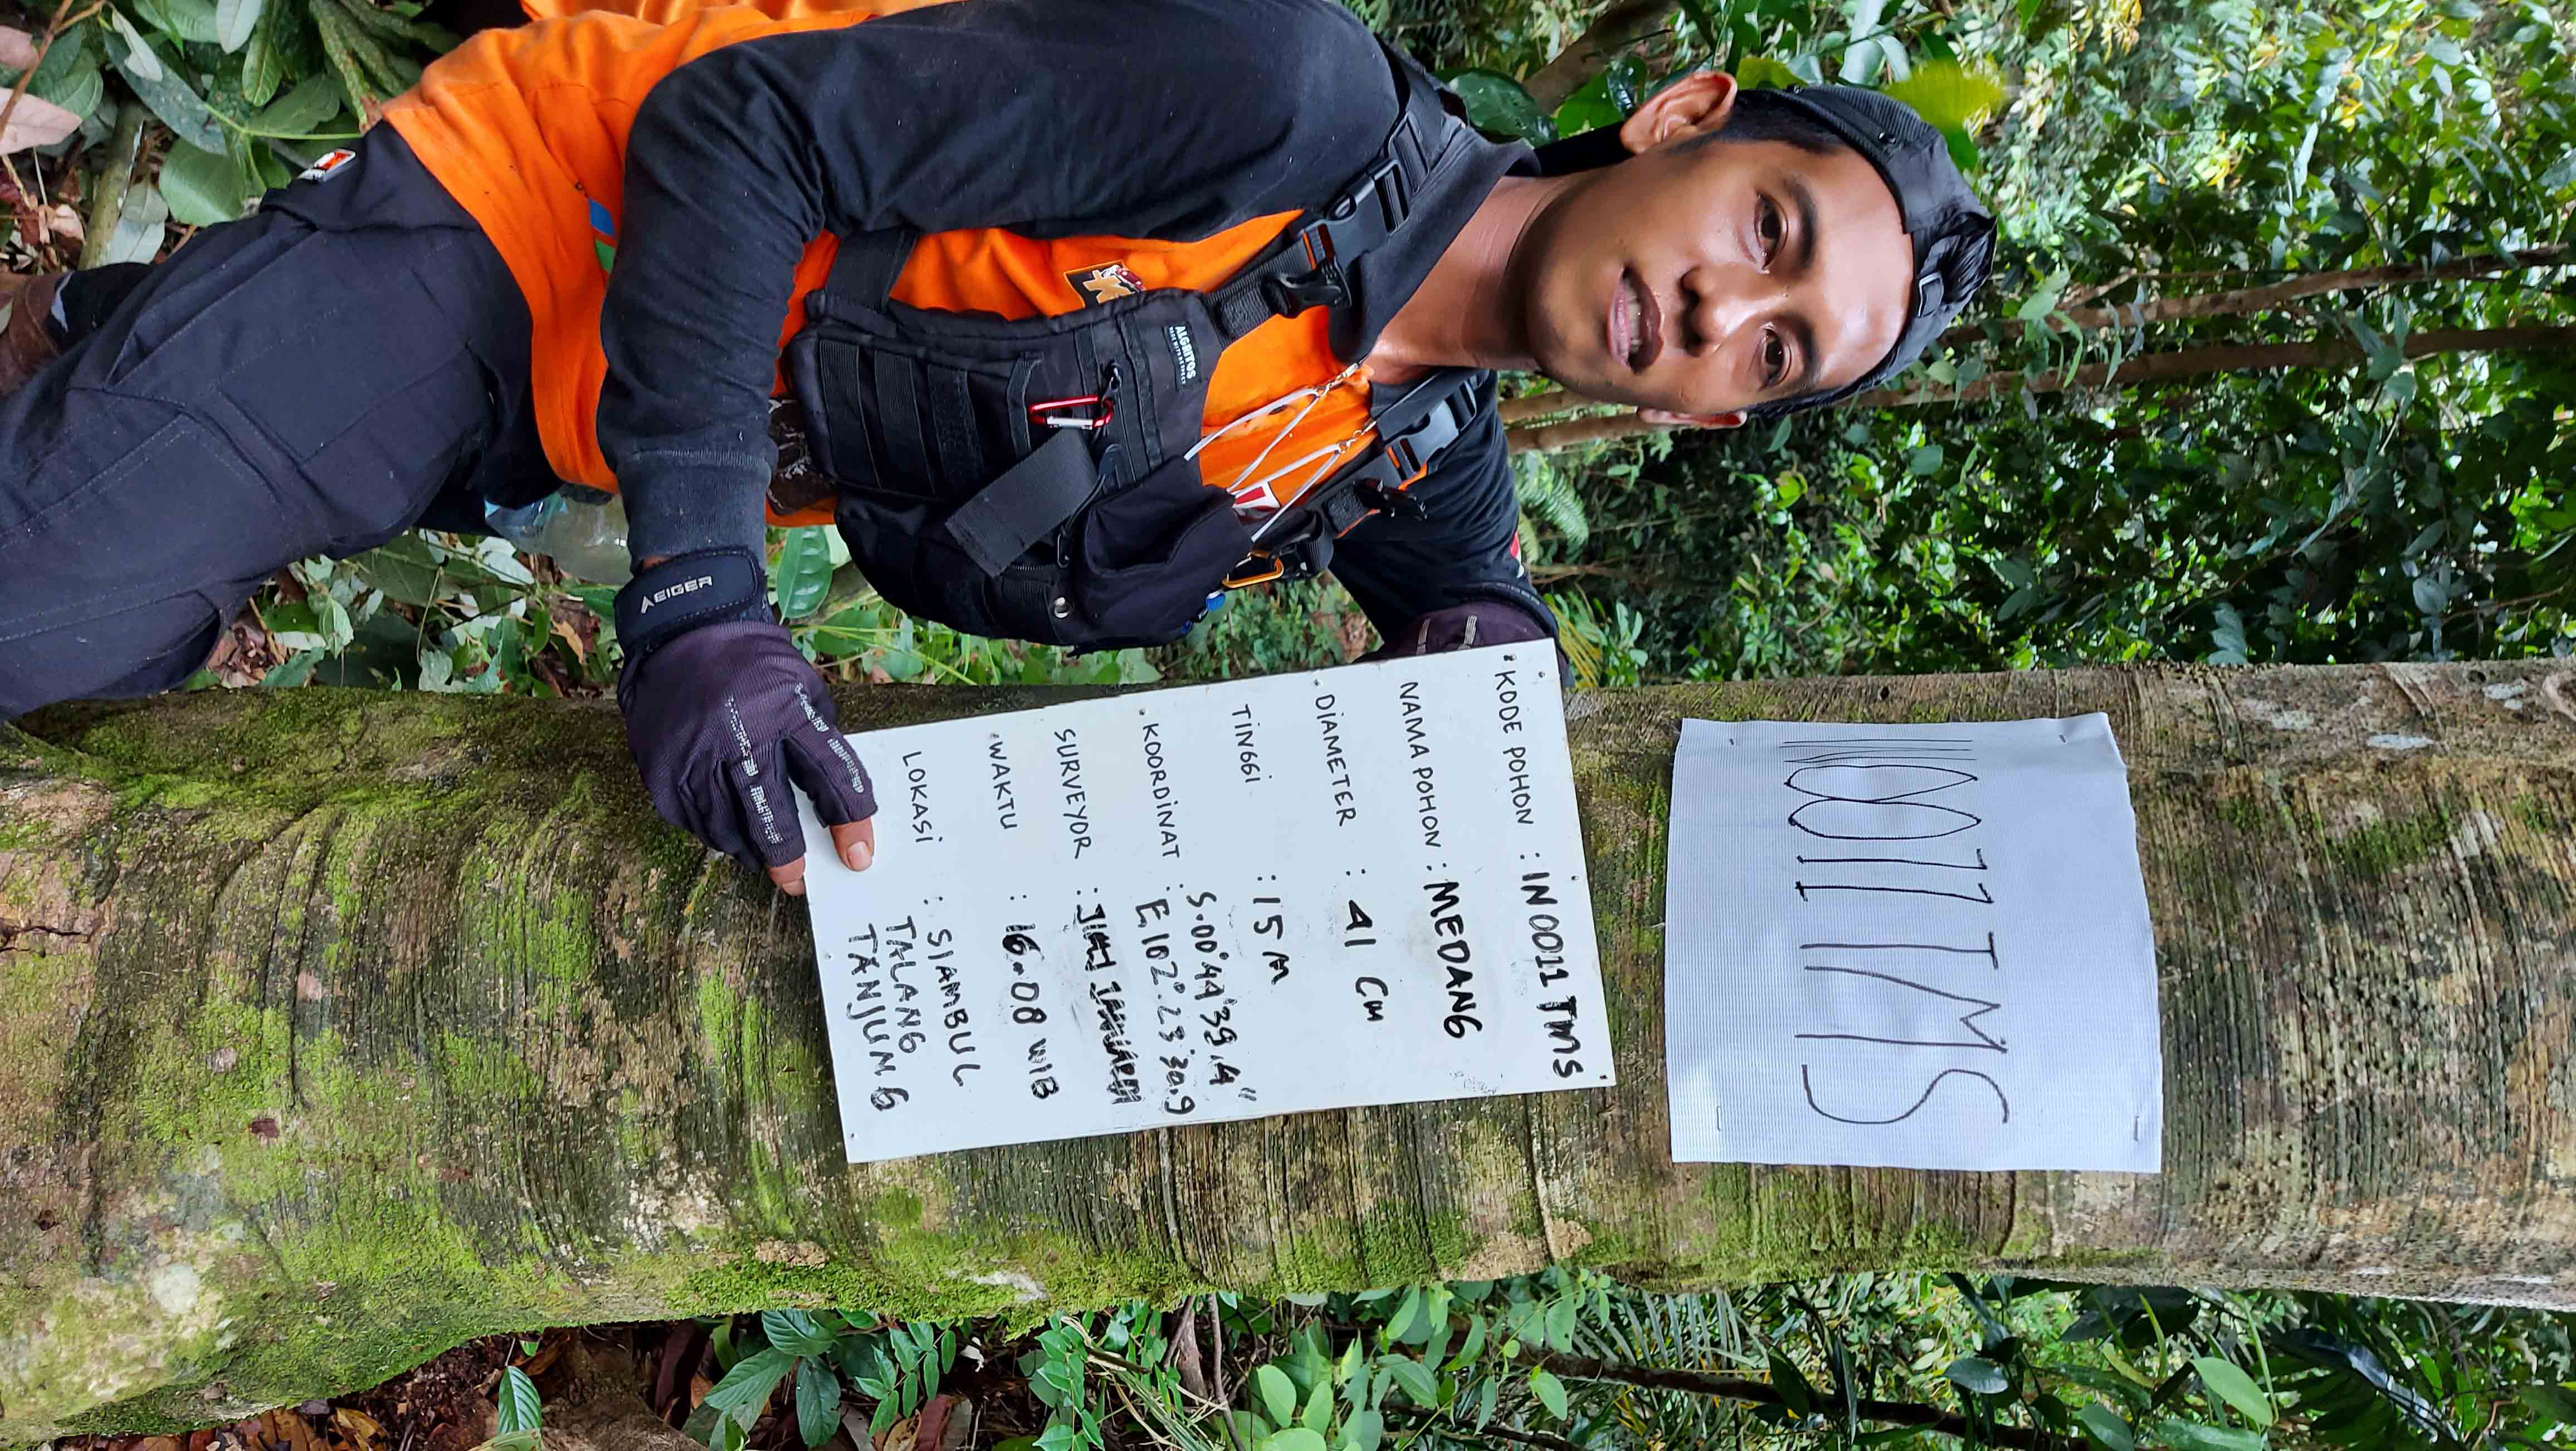 IN0011 TMS
KODE POHON : IN0011 TMS
NAMA POHON : MEDANG
DIAMETER : 41 CM
TINGGI : 15 M
KOORDINAT : S.00°44'39.4"
E.102°.23'30.9
SURVEYOR :
WAKTU : 16.08 WIB
LOKASI : SIAMBUL
TALANG
TANJUNG
AIGNITOS
EIGER